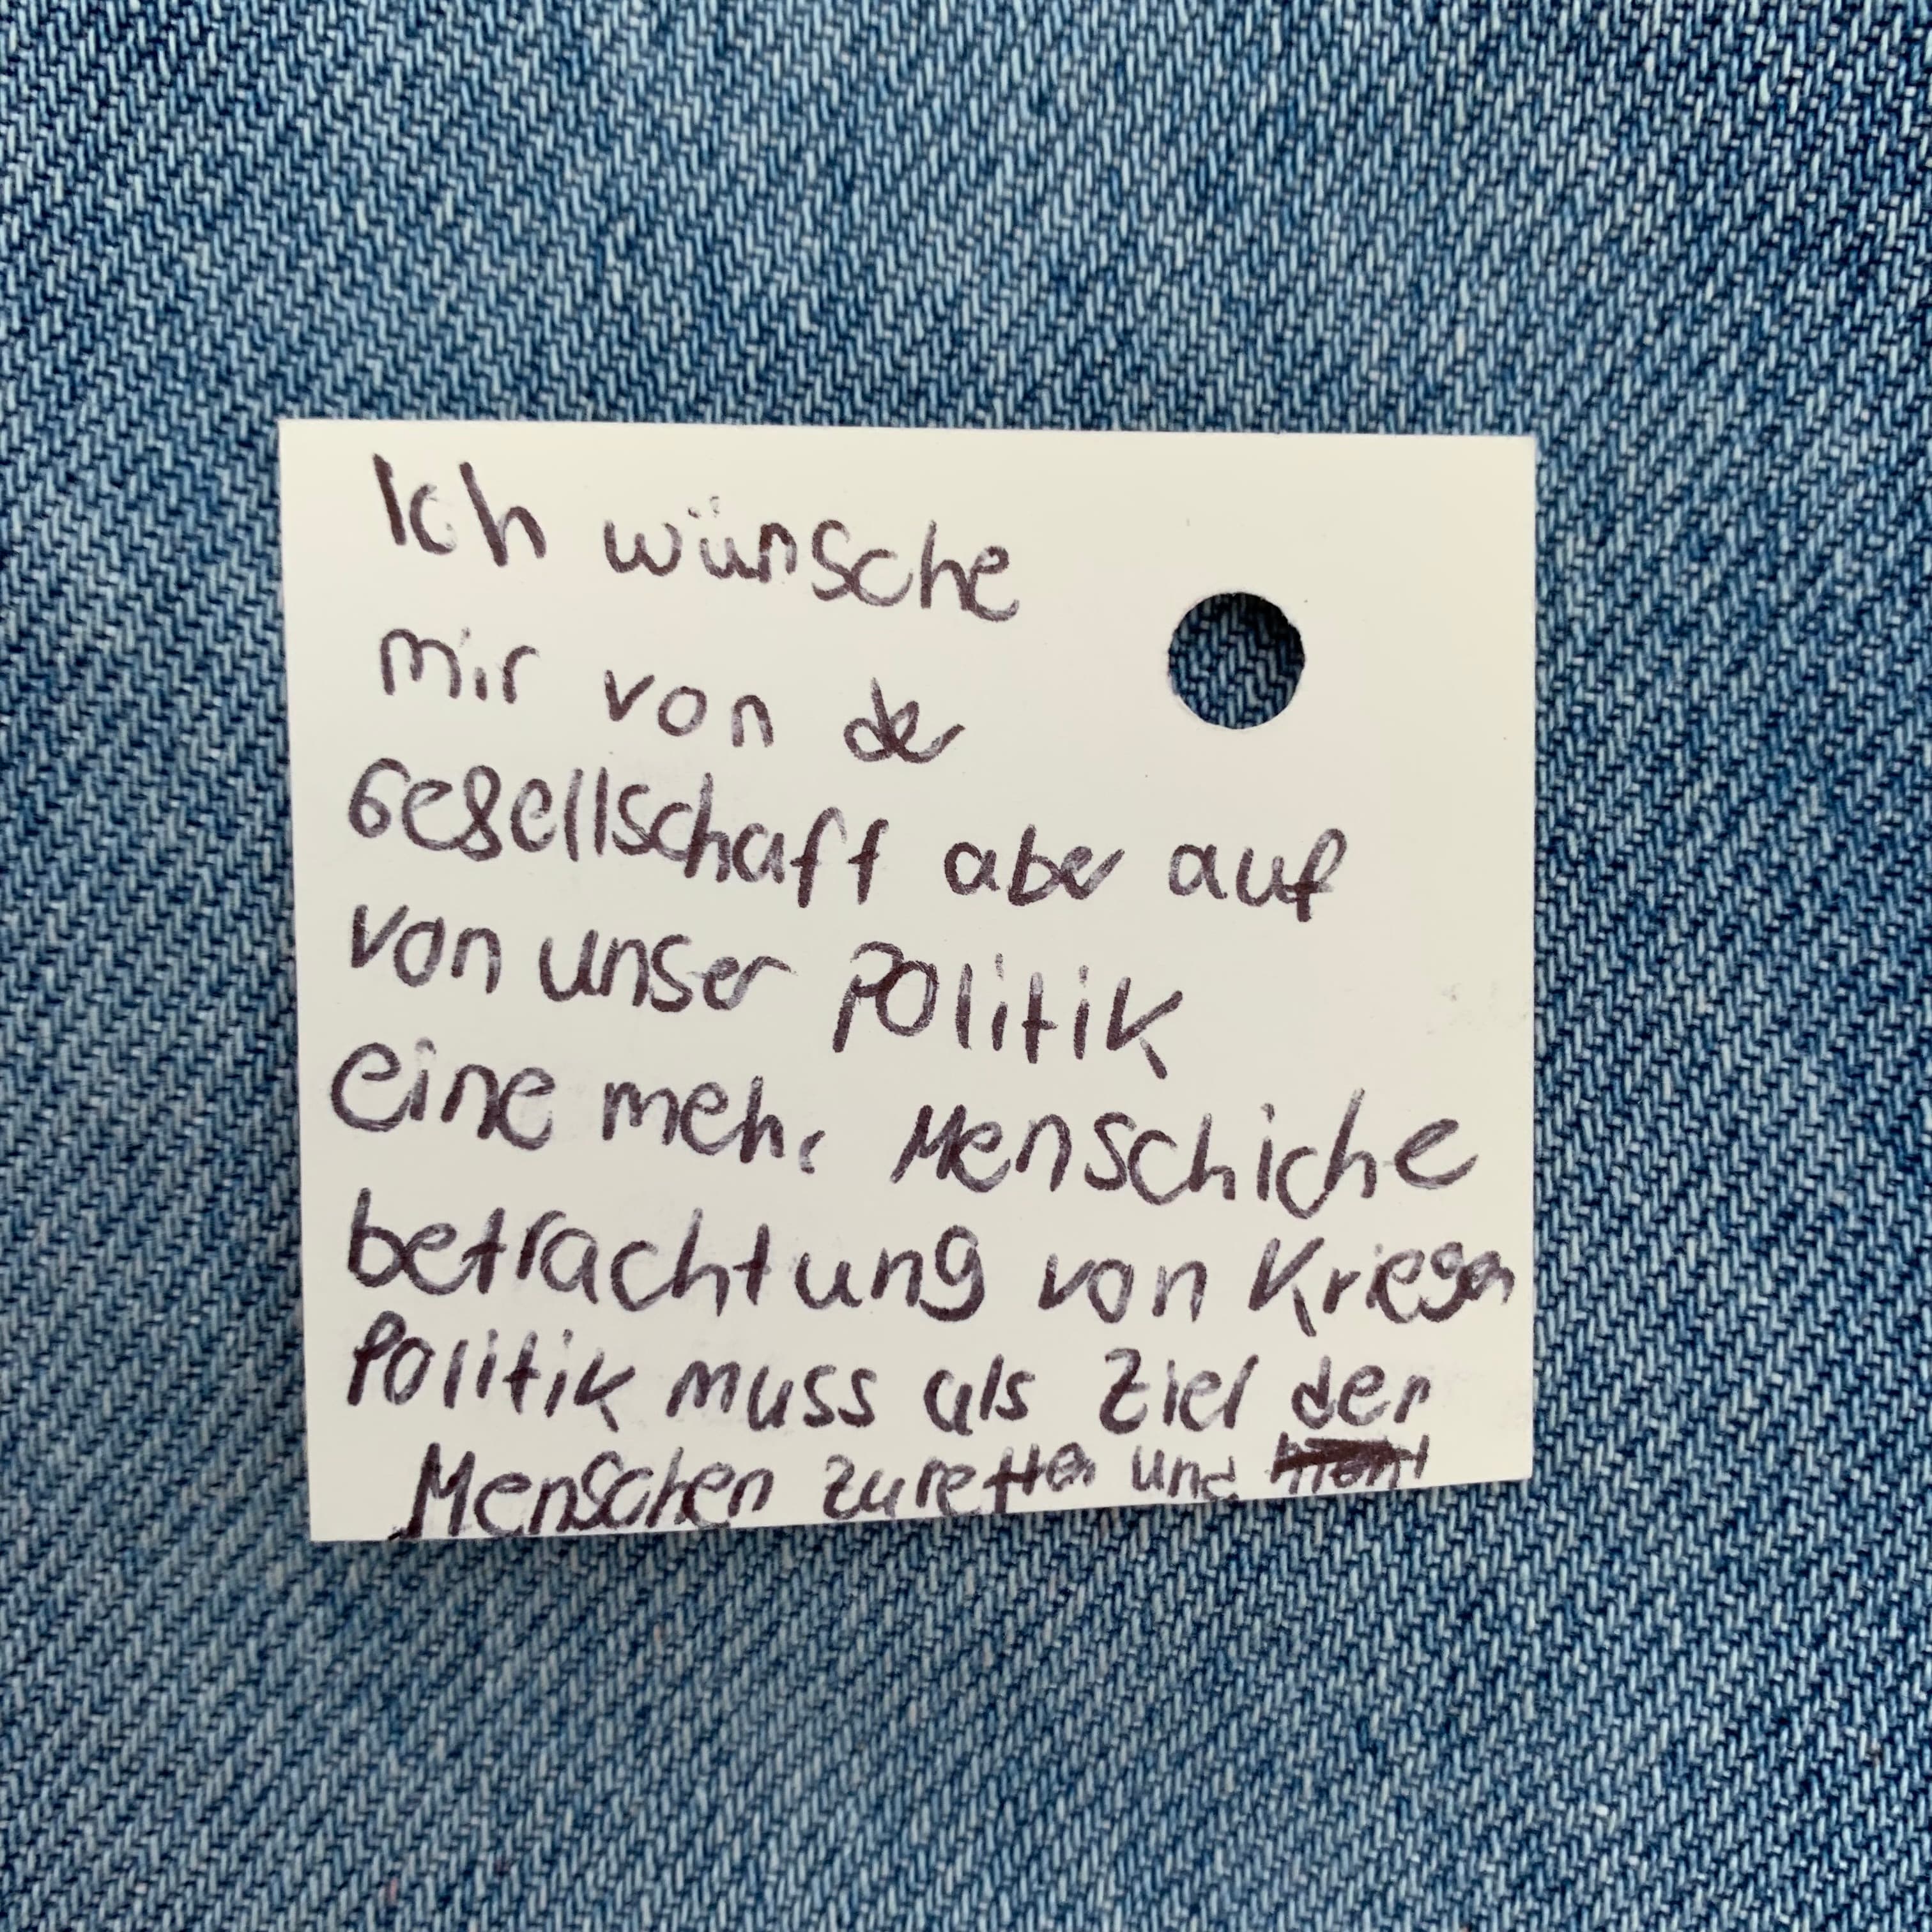 Ich wünsche
mir von der
Gesellschaft aber auf
von unser Politik
eine mehr Menschiche
betrachtung von Kriegen
Politik muss als Ziel der
Menschen zu retten und